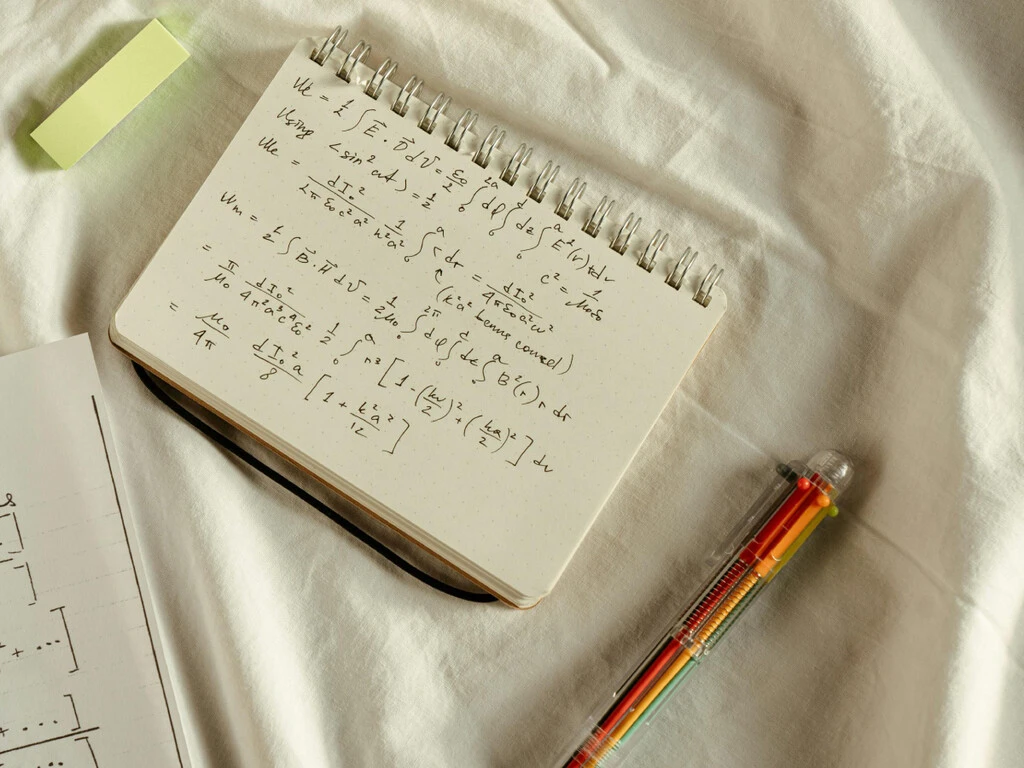 Ue = 1/2 ∫ E⃗ · D⃗ dV = ε₀/2 ∫₀^2π dφ ∫₀^d dz ∫₀^a E²(r) r dr
Using <sin² ωt> = 1/2 c² = 1/μ₀ε₀
Ue = dI₀²/2πε₀c²a² 1/k²a² ∫₀^a r dr = dI₀²/4πε₀a²ω²
(k²a² terms)
Um = 1/2 ∫ B⃗ · H⃗ dV = 1/2μ₀ ∫₀^2π dφ ∫₀^d dz ∫₀^a B²(r) r dr
= π/μ₀ dI₀²/4π²a⁴c⁴ε₀² 1/2 ∫₀^a r³ [1 - (kr/2)² + (ka/2)²] dr
= μ₀/4π dI₀²/8 [1 + k²a²/12]